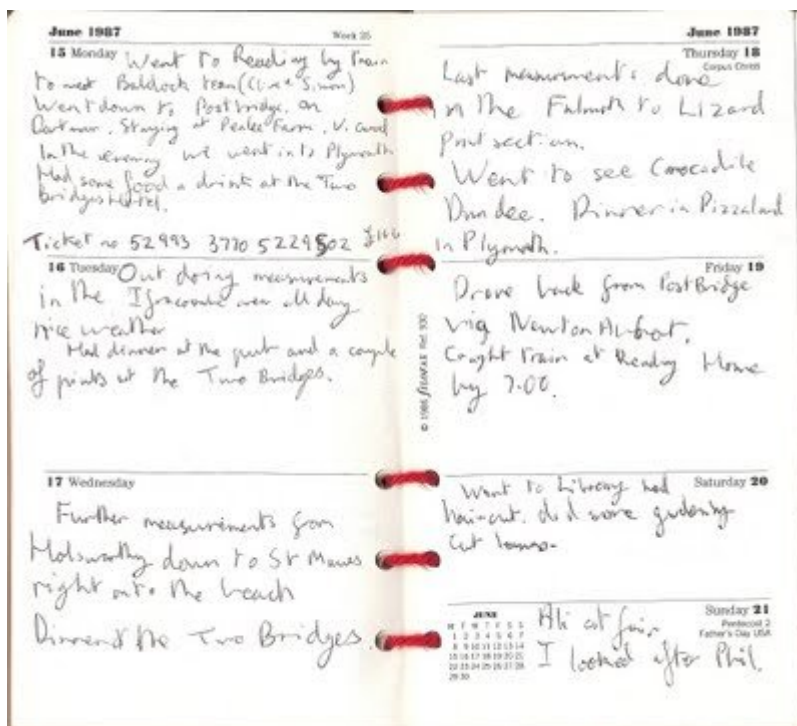 June 1987
Week 25
15 Monday Went to Reading by train
to meet Baldock team (Clive & Simon)
Went down to Postbridge, on
Dartmoor. Staying at Farm. V. Good
In the evening we went into Plymouth
Had some food & drink at the Two
Bridges Hotel.
Ticket no 52993 3770 5229502
16 Tuesday Out doing measurements
in the Ilfracombe area all day
nice weather
Had dinner at the pub and a couple
of pints at the Two Bridges.
17 Wednesday
Further measurements from
Holsworthy down to St Mawes
right onto the beach
Dinner at the Two Bridges.
June 1987
Thursday 18
Corpus Christi
Last measurements done
in the Falmouth to Lizard
Point section.
Went to see Crocodile
Dundee. Dinner in Pizzaland
in Plymouth.
Friday 19
Drove back from PostBridge
via Newton Abbot.
Caught train at Reading Home
by 7.00.
© 1986 filofax Ref 930
Saturday 20
Went to Library had
haircut, did some gardening
Cut lawns.
JUNE
M T W T F S S
1 2 3 4 5 6 7
8 9 10 11 12 13 14
15 16 17 18 19 20 21
22 23 24 25 26 27 28
29 30
Sunday 21
Pentecost 2
Father's Day USA
Ali at fair.
I looked after Phil.